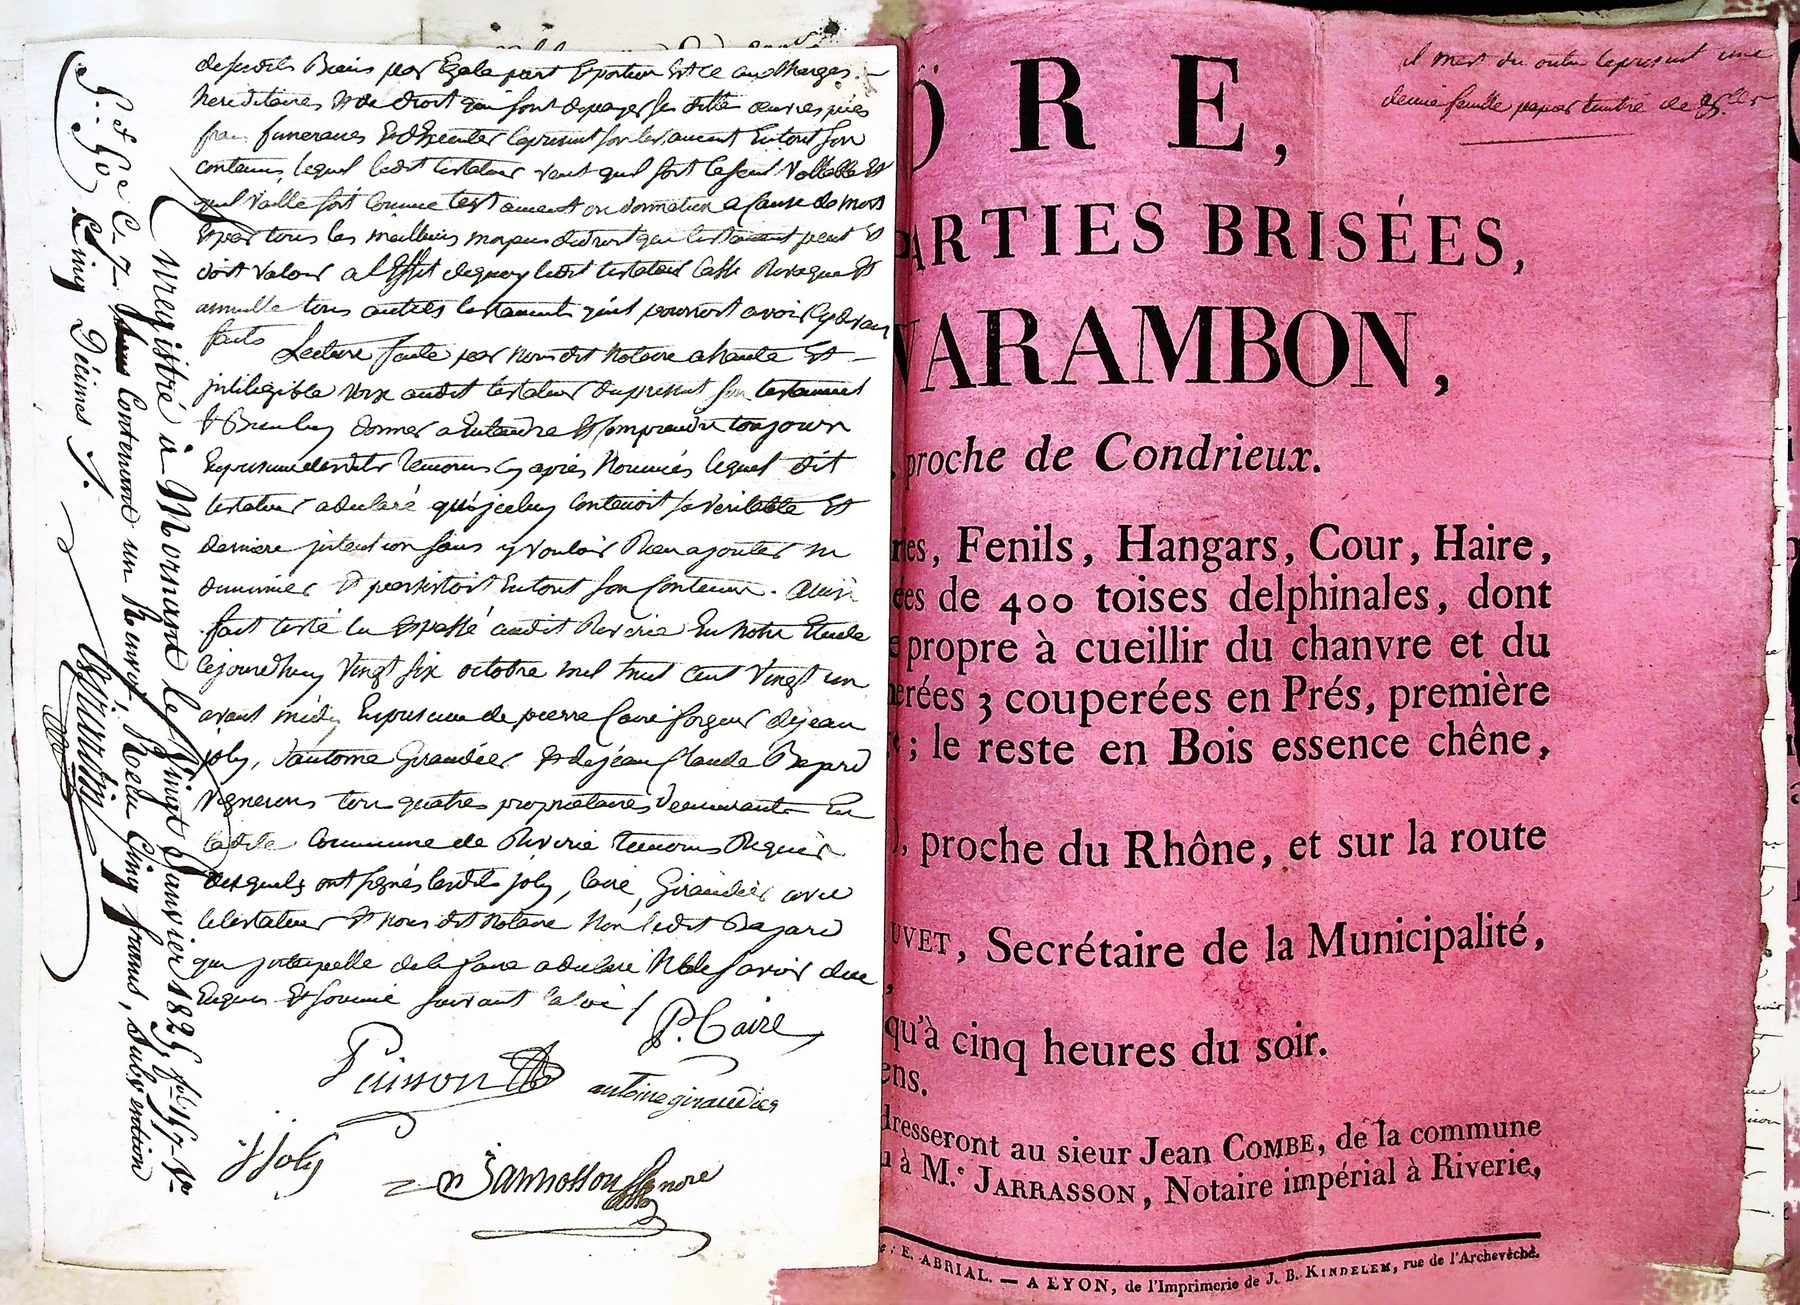 desesdits Biens par Egale part Et portion Est ce aux Charges.
hereditaires Et de droit qui sont de payer ses dettes œuvres pies
frais funeraires Et d'Executer le present son testament En tout son
contenu, lequel ledit testateur veut quil soit le seul Vallable Et
quil Vaille soit Comme testament ou donnation a Cause de mort
Et par tous les meilleurs moyens de droit que testament peut Et
doit Valoir a l'Effet de quoy ledit testateur Casse Revoque Et
annulle tous autres testaments qu'il pourroit avoir Cy devant
faits
Lecture faite par Nous dit Notaire a haute Et
intelegible Voix audit testateur du present son testament
Et Bien luy donner a Entendre Et Comprendre toujours
En presence desdits Temoins Cy après Nommés lequel dit
testateur a declaré qu'jceluy Contenoit sa Veritable Et
derniere jntention sans y Vouloir Rien ajouter ni
diminuer Et persistoit En tout Son Contenu. Ainsi
fait testé lu Et passé audit Riverie En Notre Etude
Cejourd'huy Vingt six octobre mil huit cent Vingt un
avant midy En presence de pierre Caire forgeur de jean
joly, d'antoine Giraudier Et de jean Claude Bazard
Vignerons tous quatres propriétaires demeurants En
ladite Commune de Riverie temoins Requis
desquels ont signés lesdits joly, Caire, Giraudier avec
le testateur Et Nous dit Notaire Non ledit Bazard
qui jnterpellé de le faire a declaré Ne le savoir de ce
Enquis Et sommé suivant la loi /
P. Caire
Puisson
antoine giraudier
J Joly
Jarrosson Nore
Enregistré à Mornant le Vingt Janvier 1825 fo 157 Vo
Cet Ge C. 7 Contenant un Renvoi, Reçu Cinq francs, Subvention
Cinq Décimes /.
il m'est du outre le present une
demie feuille papier timbré de 35 Ces
ORE,
PARTIES BRISÉES,
VARAMBON,
, proche de Condrieux.
ries, Fenils, Hangars, Cour, Haire,
ées de 400 toises delphinales, dont
e propre à cueillir du chanvre et du
nerées 3 couperées en Prés, première
; le reste en Bois essence chêne,
), proche du Rhône, et sur la route
UVET, Secrétaire de la Municipalité,
,
qu'à cinq heures du soir.
ens.
dresseront au sieur Jean COMBE, de la commune
u à M.e JARRASSON, Notaire impérial à Riverie,
e : E. ABRIAL. — A LYON, de l'Imprimerie de J. B. KINDELEM, rue de l'Archevêché.